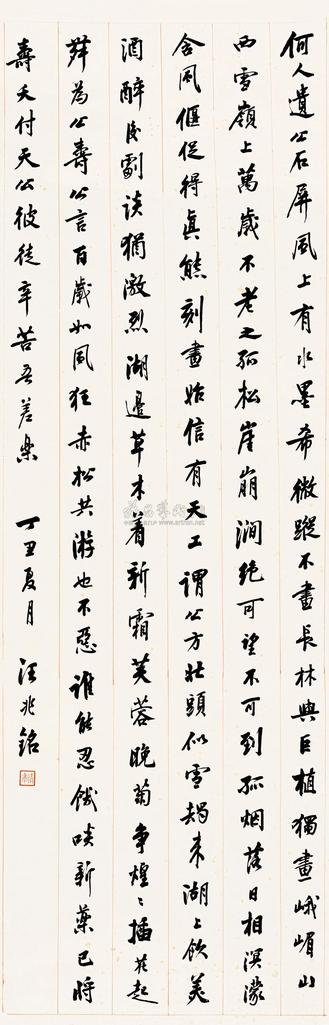 何人遺公石屏風上有水墨希微蹤不畫長林與巨植獨畫峨嵋山
西雪嶺上萬歲不老之孤松崖崩澗絕可望不可到孤烟落日相溟濛
含風偃促得真態刻畫始信有天工謂公方壯頭似雪朅来湖上飲美
酒醉後劇談猶激烈湖邊草木着新霜芙蓉晚菊争煌〻插花起
舞為公壽公言百歲如風狂赤松共游也不惡誰能忍饑啖新藥已將
壽夭付天公彼徒辛苦吾差樂 丁丑夏月 汪兆銘